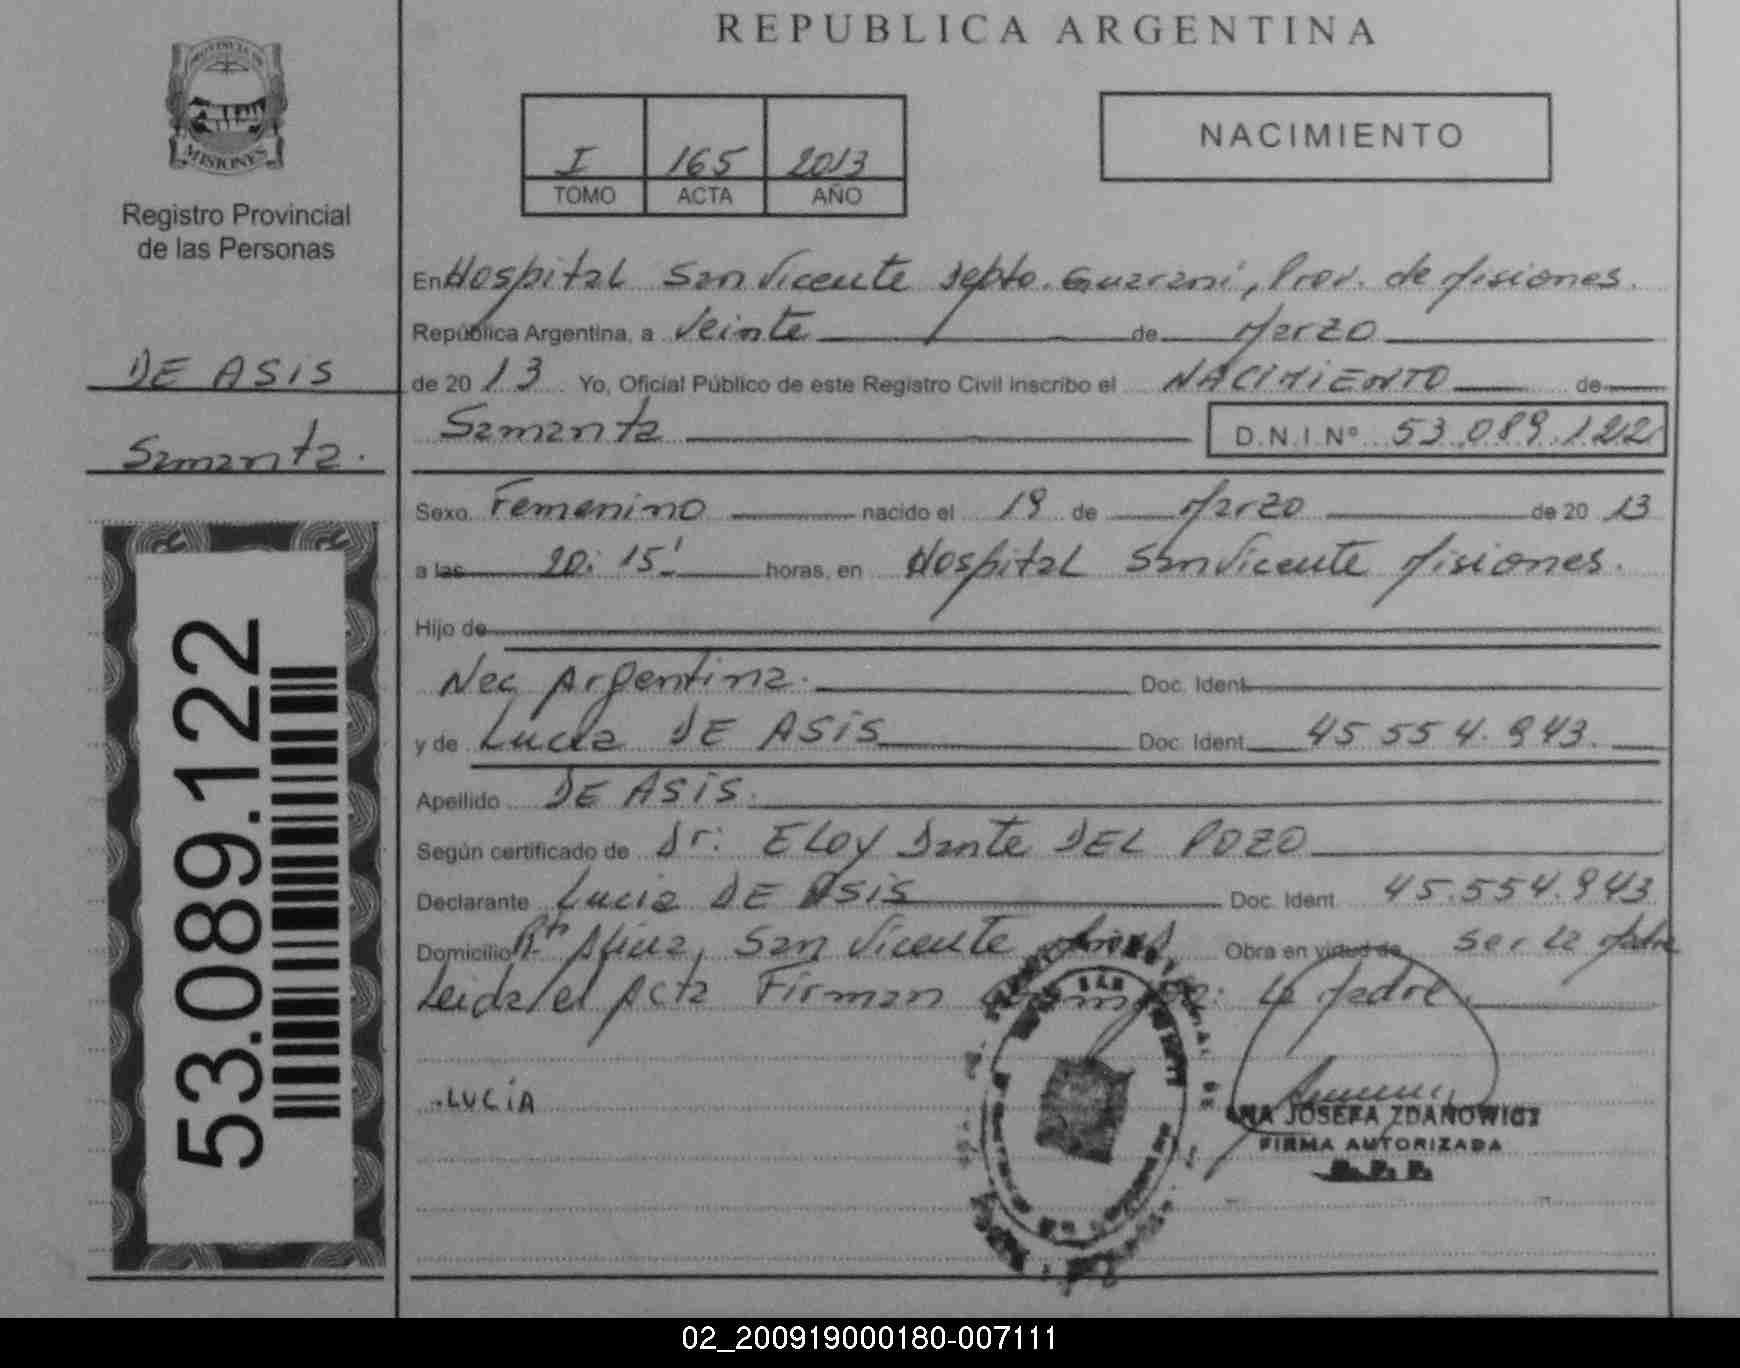 REPUBLICA ARGENTINA
PROVINCIA DE
MISIONES
Registro Provincial
de las Personas
I 165 2013
TOMO ACTA AÑO
NACIMIENTO
DE ASIS
Samanta.
53.089.122
En Hospital San Vicente Depto. Guarani, Prov. de Misiones.
República Argentina, a Veinte de Marzo
de 20 13 Yo, Oficial Público de este Registro Civil inscribo el NACIMIENTO de
Samanta D.N.I Nº 53.089.122
Sexo Femenino nacido el 19 de Marzo de 20 13
a las 20:15' horas, en Hospital San Vicente Misiones.
Hijo de
Nac Argentina. Doc. Ident.
y de Lucia DE ASIS Doc. Ident. 45 554.943.
Apellido DE ASIS.
Según certificado de Dr: ELOY Dante DEL POZO
Declarante Lucia DE ASIS Doc. Ident. 45.554.943
Domicilio San Vicente Obra en virtud de ser la Madre
Leida el Acta Firman La Madre.
LUCIA
ANA JOSEFA ZDANOWICZ
FIRMA AUTORIZADA
R. P. P.
02_200919000180-007111